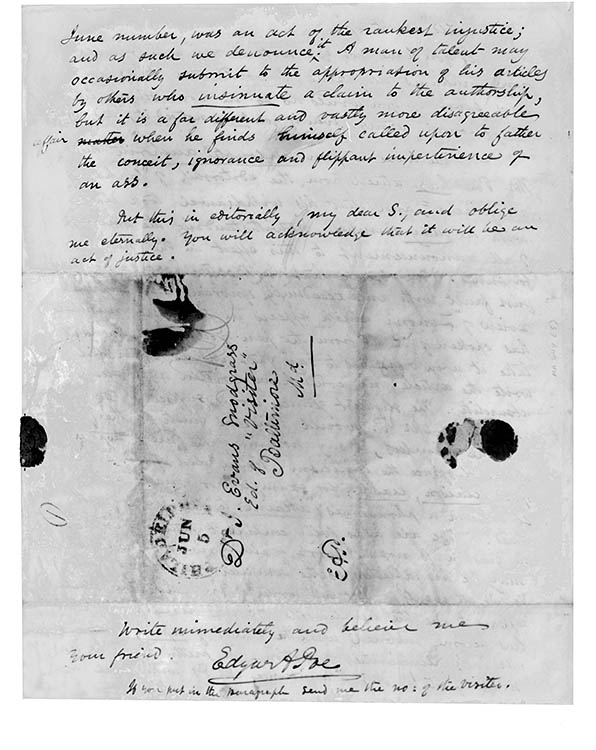 June number, was an act of the rankest injustice;
and as such we denounce it. A man of talent may
occasionally submit to the appropriation of his articles
by others who insinuate a claim to the authorship,
but it is a far different and vastly more disagreeable
affair master when he finds himself called upon to father
the conceit, ignorance and flippant impertinence of
an ass.
Put this in editorially, my dear S., and oblige
me eternally. You will acknowledge that it will be an
act of justice.
Dr. J. Evans Snodgrass
Ed. of "Visiter"
Baltimore
Md.
JUN
5
Write immediately and believe me
Your friend.
Edgar A Poe
If you put in the paragraph send me the no: of the Visiter.